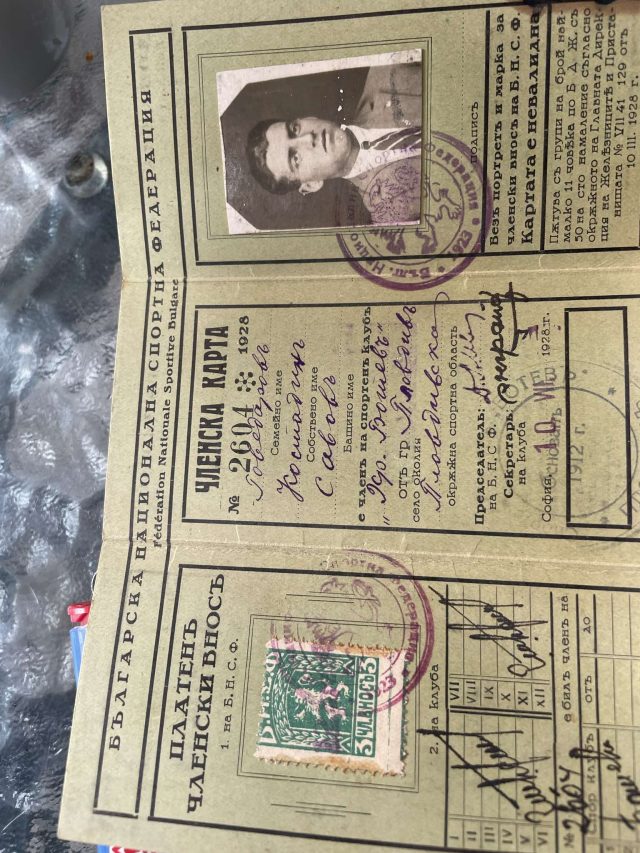 БЪЛГАРСКА НАЦИОНАЛНА СПОРТНА ФЕДЕРАЦИЯ
Fédération Nationale Sportive Bulgare
ПЛАТЕНЪ
ЧЛЕНСКИ ВНОСЪ
1. на Б. Н. С. Ф.
3 ЧЛ. ВНОСЪ 3
2. на клуба
I VII
II VIII
III IX
IV X
V XI
VI XII
№ 2604 е билъ членъ на
Спор клубъ отъ до
ЧЛЕНСКА КАРТА
№ 2604 1928
Говедаровъ
Семейно име
Костадинъ
Собствено име
Савовъ
Башино име
е членъ на спортенъ клубъ
"Хр. Ботевъ"
отъ гр Пловдивъ
село околия
Пловдивска
окрѫжна спортна область
Председатель:
на Б. Н. С. Ф.
Секретарь:
на клуба
София, 10 VII 1928 г.
БОТЕВЪ
ОСНОВАНЪ
1912 г.
Бълг. Национ. Спортна Федерация • 1923
подпись
Безъ портретъ и марка за
членски вносъ на Б. Н. С. Ф.
Картата е невалидна
Пѫтува съ групи на брой най-
малко 11 човѣка по Б Д Ж. съ
50 на сто намаление съгласно
окрѫжното на Главната Дирек-
ция на Железницитѣ и Приста-
нищата № VII 41 129 отъ
10 III. 1928 г.